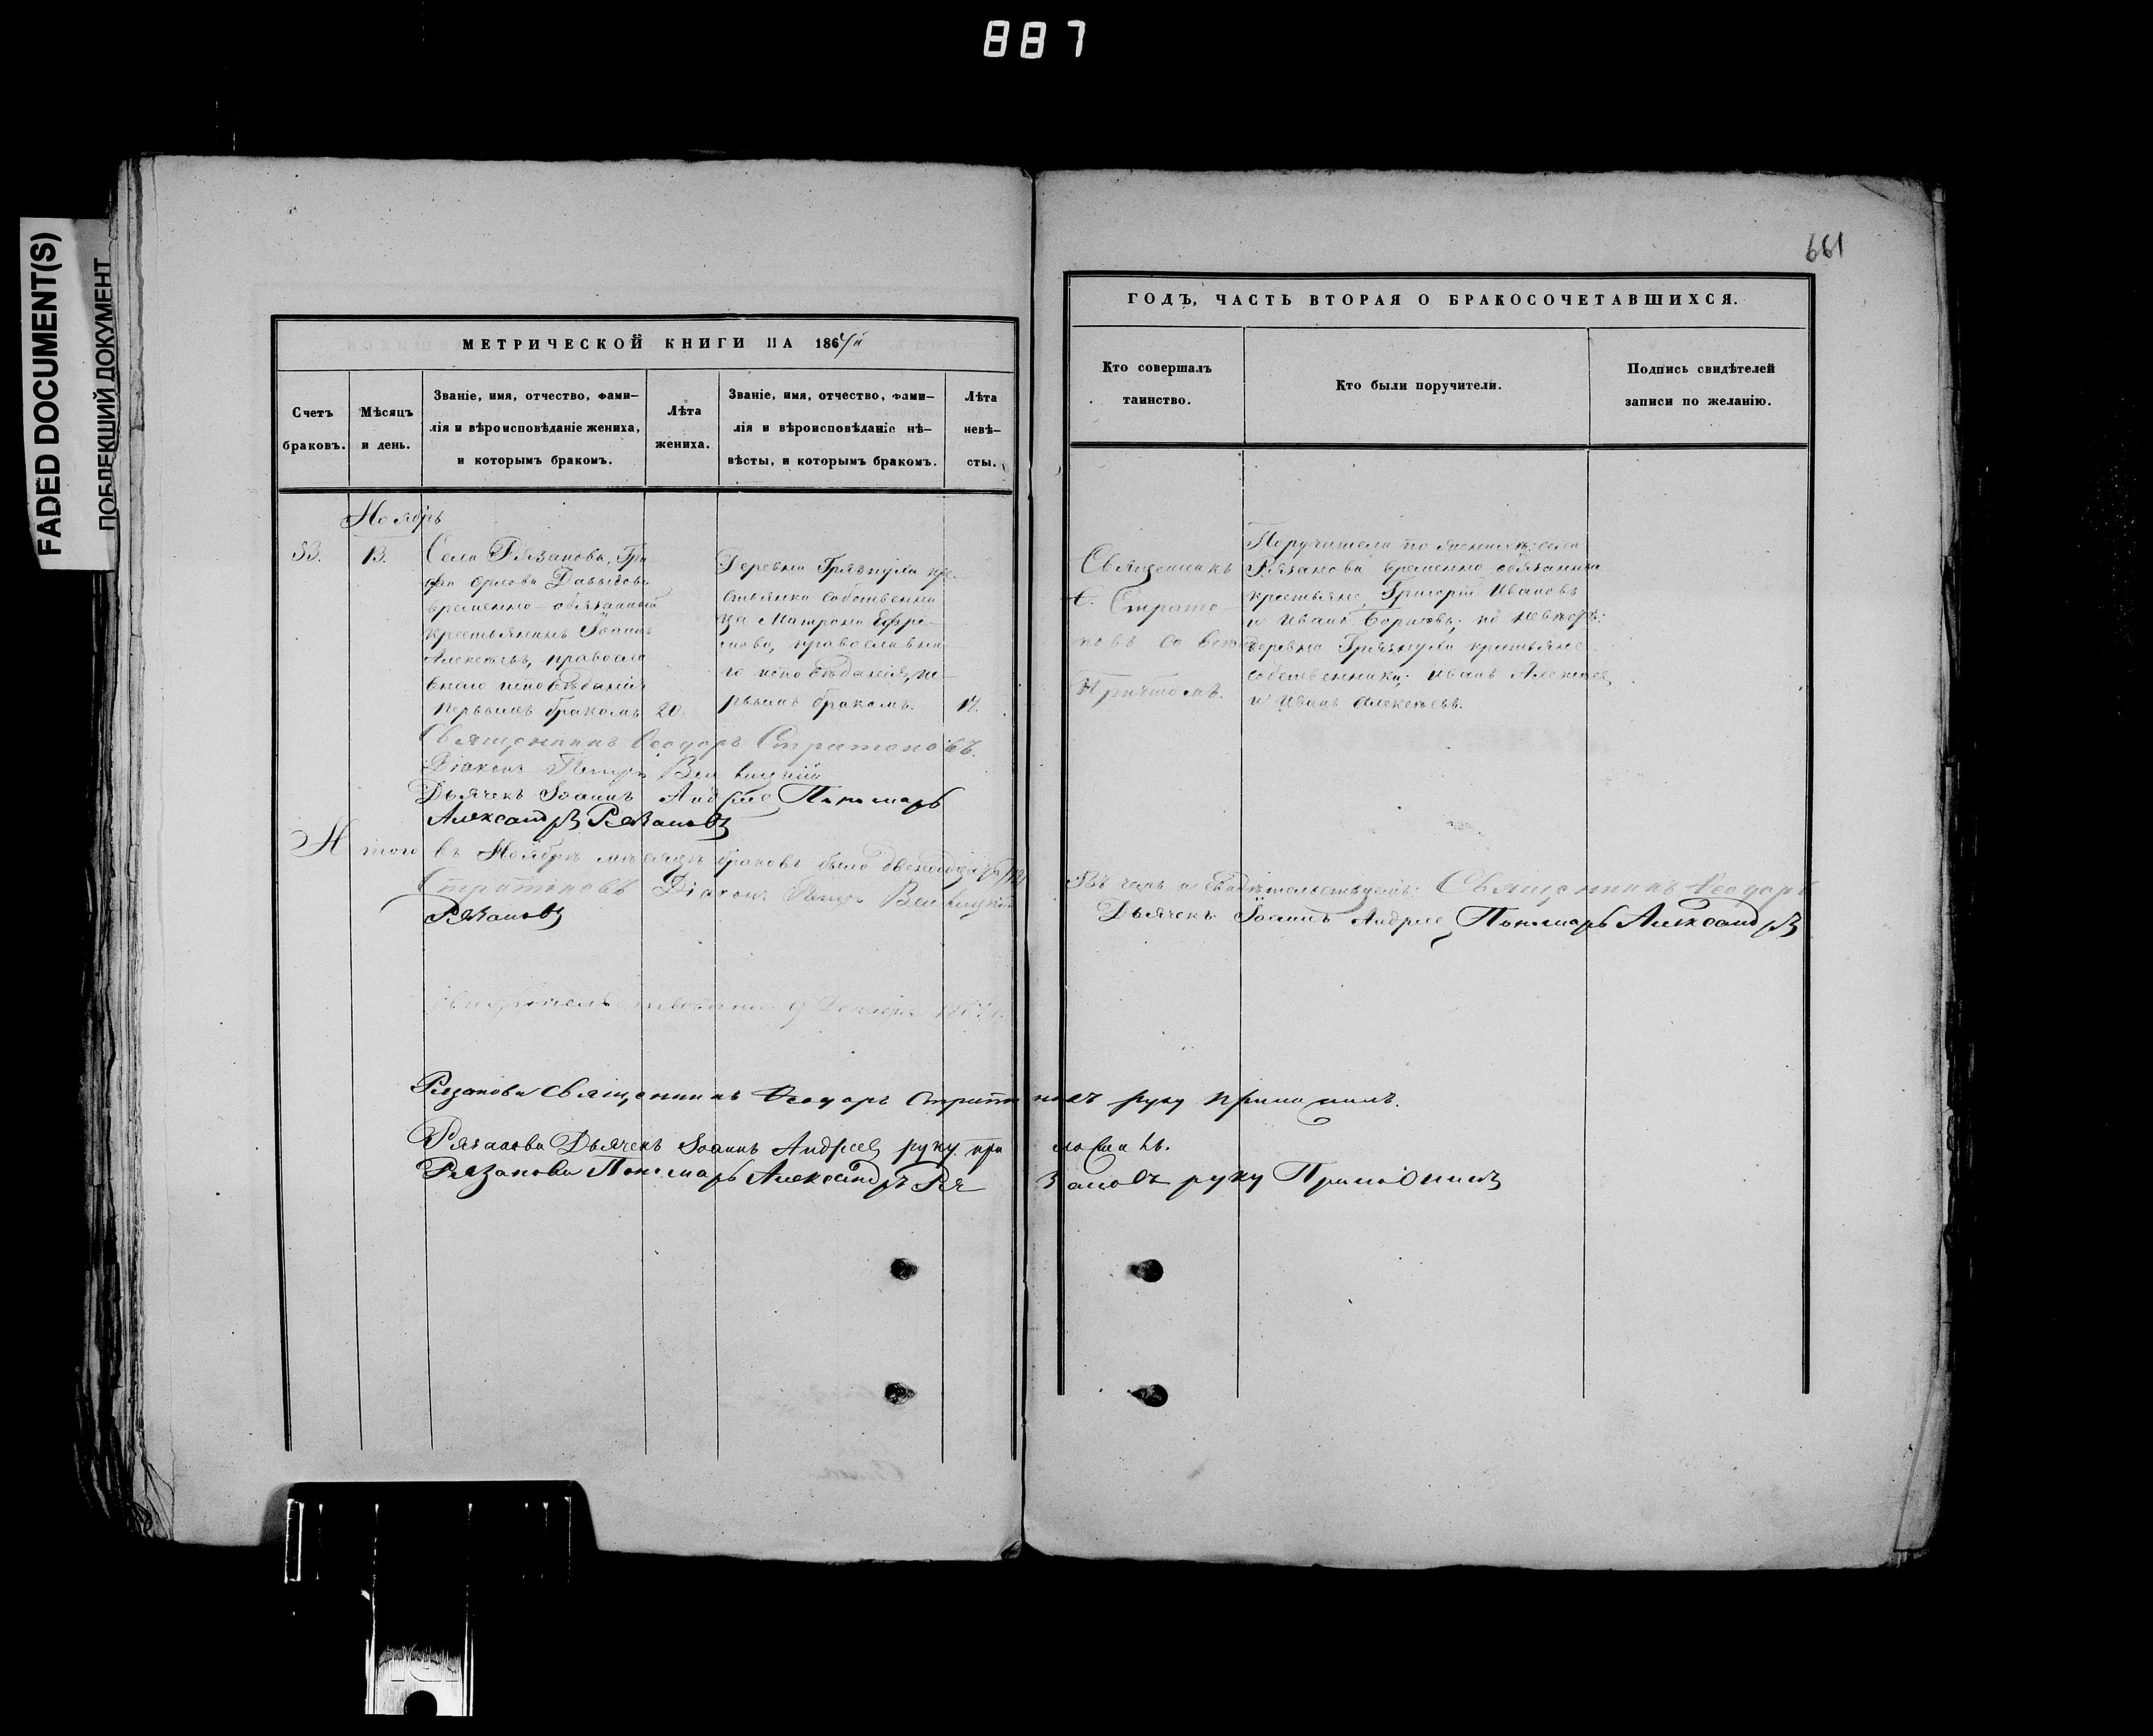 887
FADED DOCUMENT(S)
ПОБЛЕКШИЙ ДОКУМЕНТ
661
МЕТРИЧЕСКОЙ КНИГИ НА 186
ГОДЪ, ЧАСТЬ ВТОРАЯ О БРАКОСОЧЕТАВШИХСЯ.
Счетъ
браковъ.
Мѣсяцъ
и день.
Званіе, имя, отчество, фами-
лія и вѣроисповѣданіе жениха,
и которымъ бракомъ.
Лѣта
жениха.
Званіе, имя, отчество, фами-
лія и вѣроисповѣданіе не-
вѣсты, и которымъ бракомъ.
Лѣта
невѣ-
сты.
Кто совершалъ
таинство.
Кто были поручители.
Подпись свидѣтелей
записи по желанію.
Ноябрь
13.
Села Рязанова, Гра
фа Орлова Давыдова
временно-обязанный
крестьянинъ Іоаннъ
Алексѣевъ, правосла
внаго исповѣданія
первымъ бракомъ
20.
Деревни Грязнухи кре-
стьянки собственни
ца Матрона Ефре-
мова, православна
го исповѣданія, пе-
рвымъ бракомъ.
17.
Священникъ
Ѳ. Страто-
новъ со всѣмъ
Причтомъ.
Поручители по женихѣ: села
Рязанова временно-обязанные
крестьяне, Григорій Ивановъ
и Иванъ Борисовъ; по невѣстѣ:
деревни Грязнухи крестьяне
собственники: Иванъ Алексѣевъ
и Иванъ Алексѣевъ.
Священникъ Ѳеодоръ Стратоновъ.
Діаконъ Петръ
Дьячекъ Іоаннъ Андреевъ Пономарь
Александръ Рязановъ
Итого въ Ноябрѣ мѣсяцѣ браковъ было двенадцать
Въ чемъ и свидѣтельствуемъ: Священникъ Ѳеодоръ
Стратоновъ Діаконъ Петръ
Дьячекъ Іоаннъ Андреевъ Пономарь Александръ
Рязановъ
9 Декабря
Рязанова Священникъ Ѳеодоръ Стратоновъ руку приложилъ.
Рязанова Дьячекъ Іоаннъ Андреевъ руку приложилъ.
Рязанова Пономарь Александръ Рязановъ руку Приложилъ